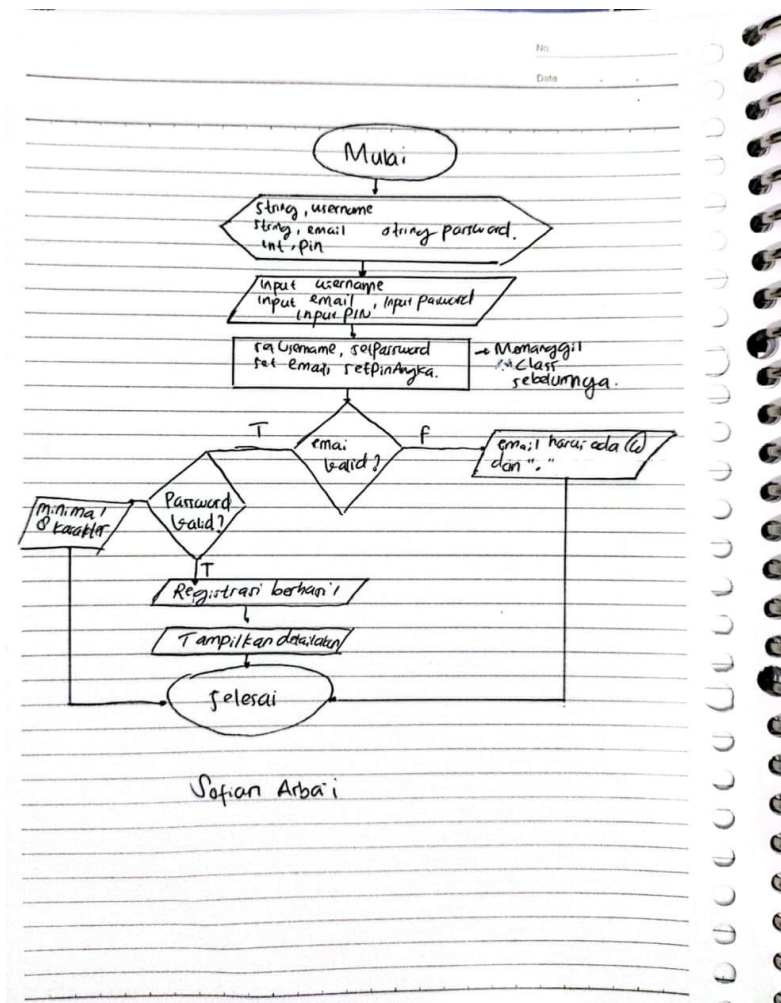 No
Date
Mulai
string, username
string, email string password.
int, pin
Input username
input email, input password
input PIN
set Username, setPassword
set email, setPinAngka.
→ Memanggil
class
sebelumnya.
T
F
emai
valid?
email harus ada @
dan "."
Password
valid?
minimal
8 karakter
T
Registrasi berhasil
Tampilkan detailakun
Selesai
Sofian Arba'i